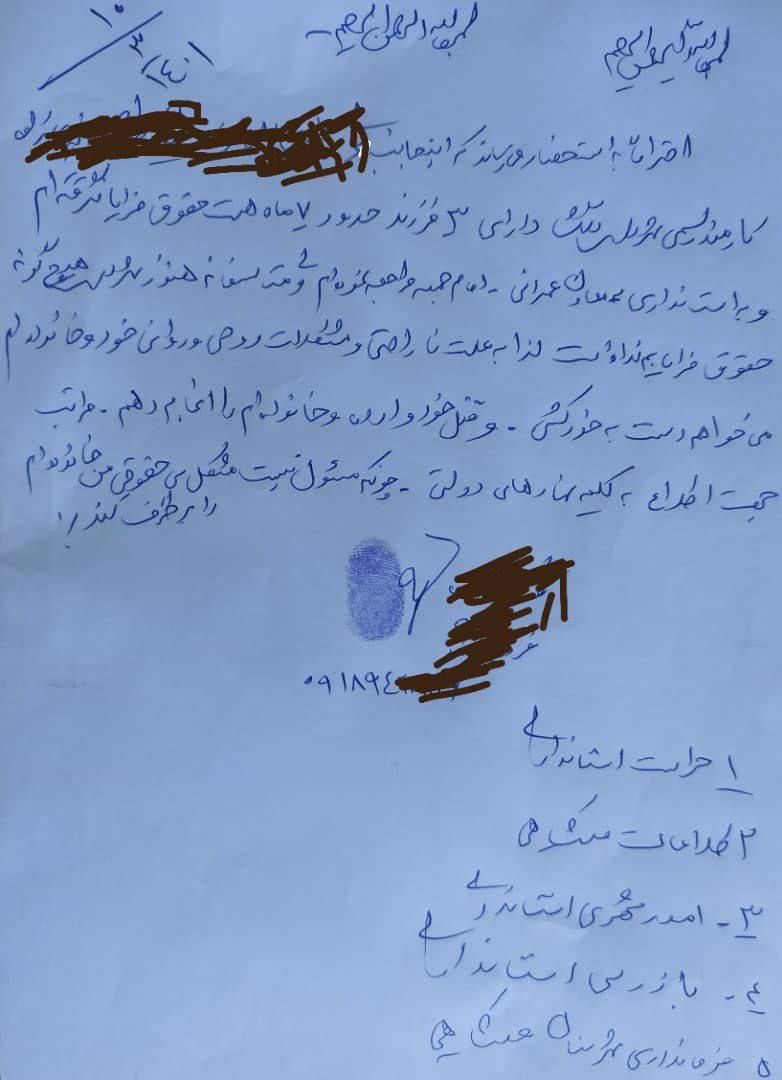 بسم الله الرحمن الرحیم
بسم الله الرحمن الرحیم
۱۴۰۱/۳/۱۰
احتراماً به استحضار می‌رساند که اینجانب
کارمند رسمی شهرداری دارای ۳ فرزند حدود ۷ ماه هست حقوق مزایا نگرفته ام
و به استانداری معاون عمرانی - امام جمعه مراجعه نموده‌ام ولی متاسفانه هنوز شهرداری هیچ گونه
حقوق مزایایم نداده است لذا به علت ناراحتی و مشکلات روحی و روانی خود و خانواده ام
می‌خواهم دست به خودکشی - و قتل خود و اون و خانواده‌ام را انجام دهم - مراتب
جهت اطلاع به کلیه نهادهای دولتی - چونکه مسئول نیست مشکل بی حقوقی من خانواده ام
را برطرف کند
۰۹۱۸۹۴
۱ حراست استانداری
۲ اطلاعات
۳- امور شهری استانداری
۴- بازرسی استانداری
۵ فرمانداری شهرستان